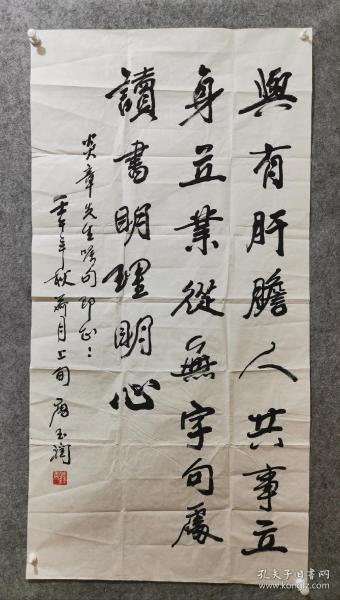 與有肝膽人共事立
身立業從無字句處
讀書明理明心
炎章先生嘱句即正
壬午年秋菊月上旬 唐玉润
孔夫子旧书网